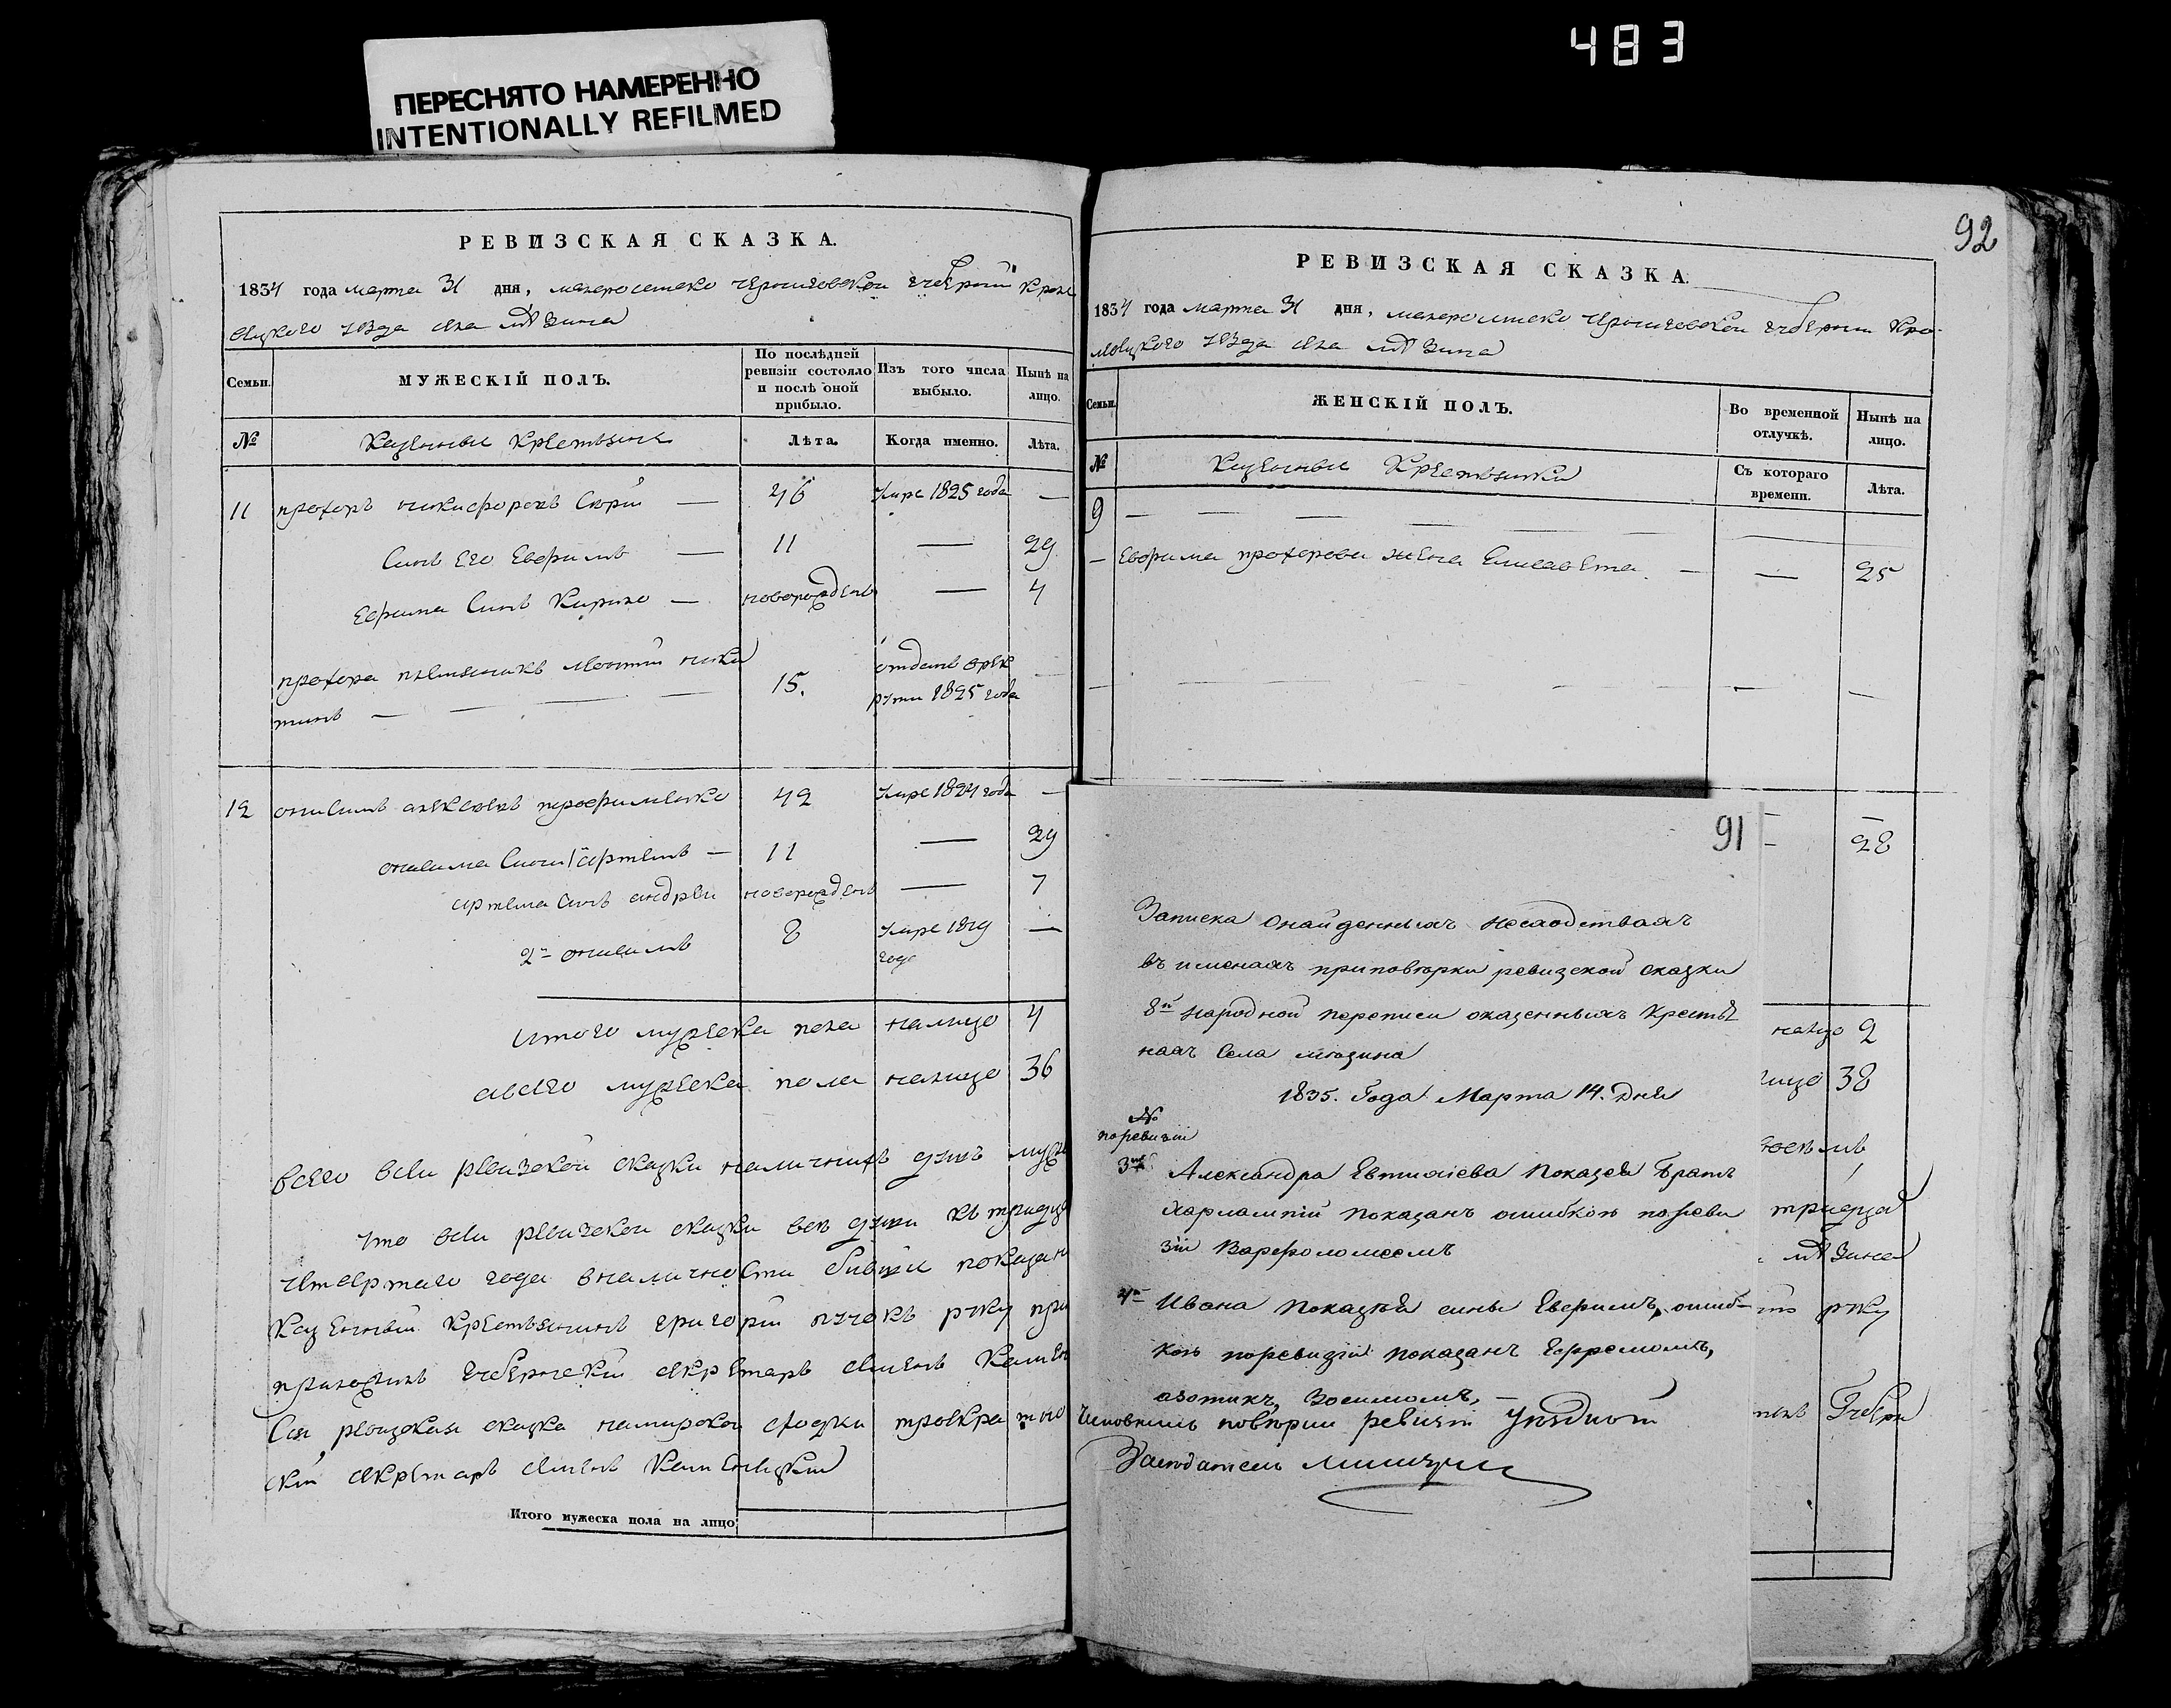 483
ПЕРЕСНЯТО НАМЕРЕННО
INTENTIONALLY REFILMED
РЕВИЗСКАЯ СКАЗКА.
1834 года марта 31 дня, малоросииско Черниговскои губернии Кроле
вецкого уезда села мѣзина
Семьи.
МУЖЕСКІЙ ПОЛЪ.
По послѣдней
ревизіи состояло
и послѣ оной
прибыло.
Изъ того числа
выбыло.
Нынѣ на
лицо.
№
Казенные крестьяне
Лѣта.
Когда именно.
Лѣта.
11 прохоръ никифоровъ Сюрій — 46 умре 1825 года —
Синъ его Евфимъ — 11 — 29
Ефима Синъ Кирило — новорожденъ — 4
прохора племяникъ Леонтій ники
тинъ — 15. отданъ врек
рути 1825 года —
12 онисимъ алексеевъ трофименко 42 умре 1824 года —
онисима Сини 1й артемъ — 11 — 29
артема Синъ андреи новорожденъ — 7
2й онисимъ 8 умре 1819 —
года
итого мужеска пола налицо 4
авсего мужеска пола налицо 36
всего всеи ревизской сказки наличнихъ душъ мужс
что всеи ревизскои сказки все души къ тридца
четвертаго года вналичности бившие показан
Казенный крестьянинъ григорій руку при
приложилъ губернскій секретарь семенъ Камен
Сия ревизская сказка намирской сходки
скій секретарь семенъ Каменецкій
Итого мужеска пола на лицо
92
РЕВИЗСКАЯ СКАЗКА.
1834 года марта 31 дня, малоросииско Черниговскои губернии Кро-
левецкого уезда села мѣзина
Семьи.
ЖЕНСКІЙ ПОЛЪ.
Во временной
отлучкѣ.
Нынѣ на
лицо.
№
Казенные Крестьянки
Съ котораго
времени.
Лѣта.
9 — — — — — —
— Евфима прохорова жена Елисавета — — 25
— — — — —
— —
— 28
налицо 2
лицо 38
тридца
мѣзина
руку
Губерн
91
Записка онайденныхъ несходствахъ
въ именахъ приповѣрки ревизской сказки
8й народной переписи оказенныхъ крестья
нахъ Села мѣзина
1835. Года Марта 14. Дня
№
поревизіи
3й Александра Евтихіева Показан Братъ
Харлампій показанъ ошибкою пореви
зіи Варфоломеемъ
4й Ивана показан сины Евфимъ, ошиб-
кою поревизіи показанъ Ефремомъ,
азотикъ, Зосимомъ, —
повѣрки ревизіи уездной
Заседатель